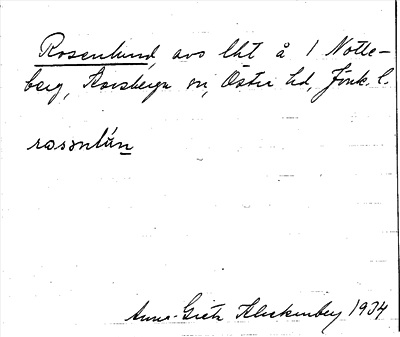 Rosenlund, avs lht å 1 Notte-
berg, Korsberga sn, Östra hd, Jönk. l.
rosənlún
Anna-Greta Kleckenberg 1934